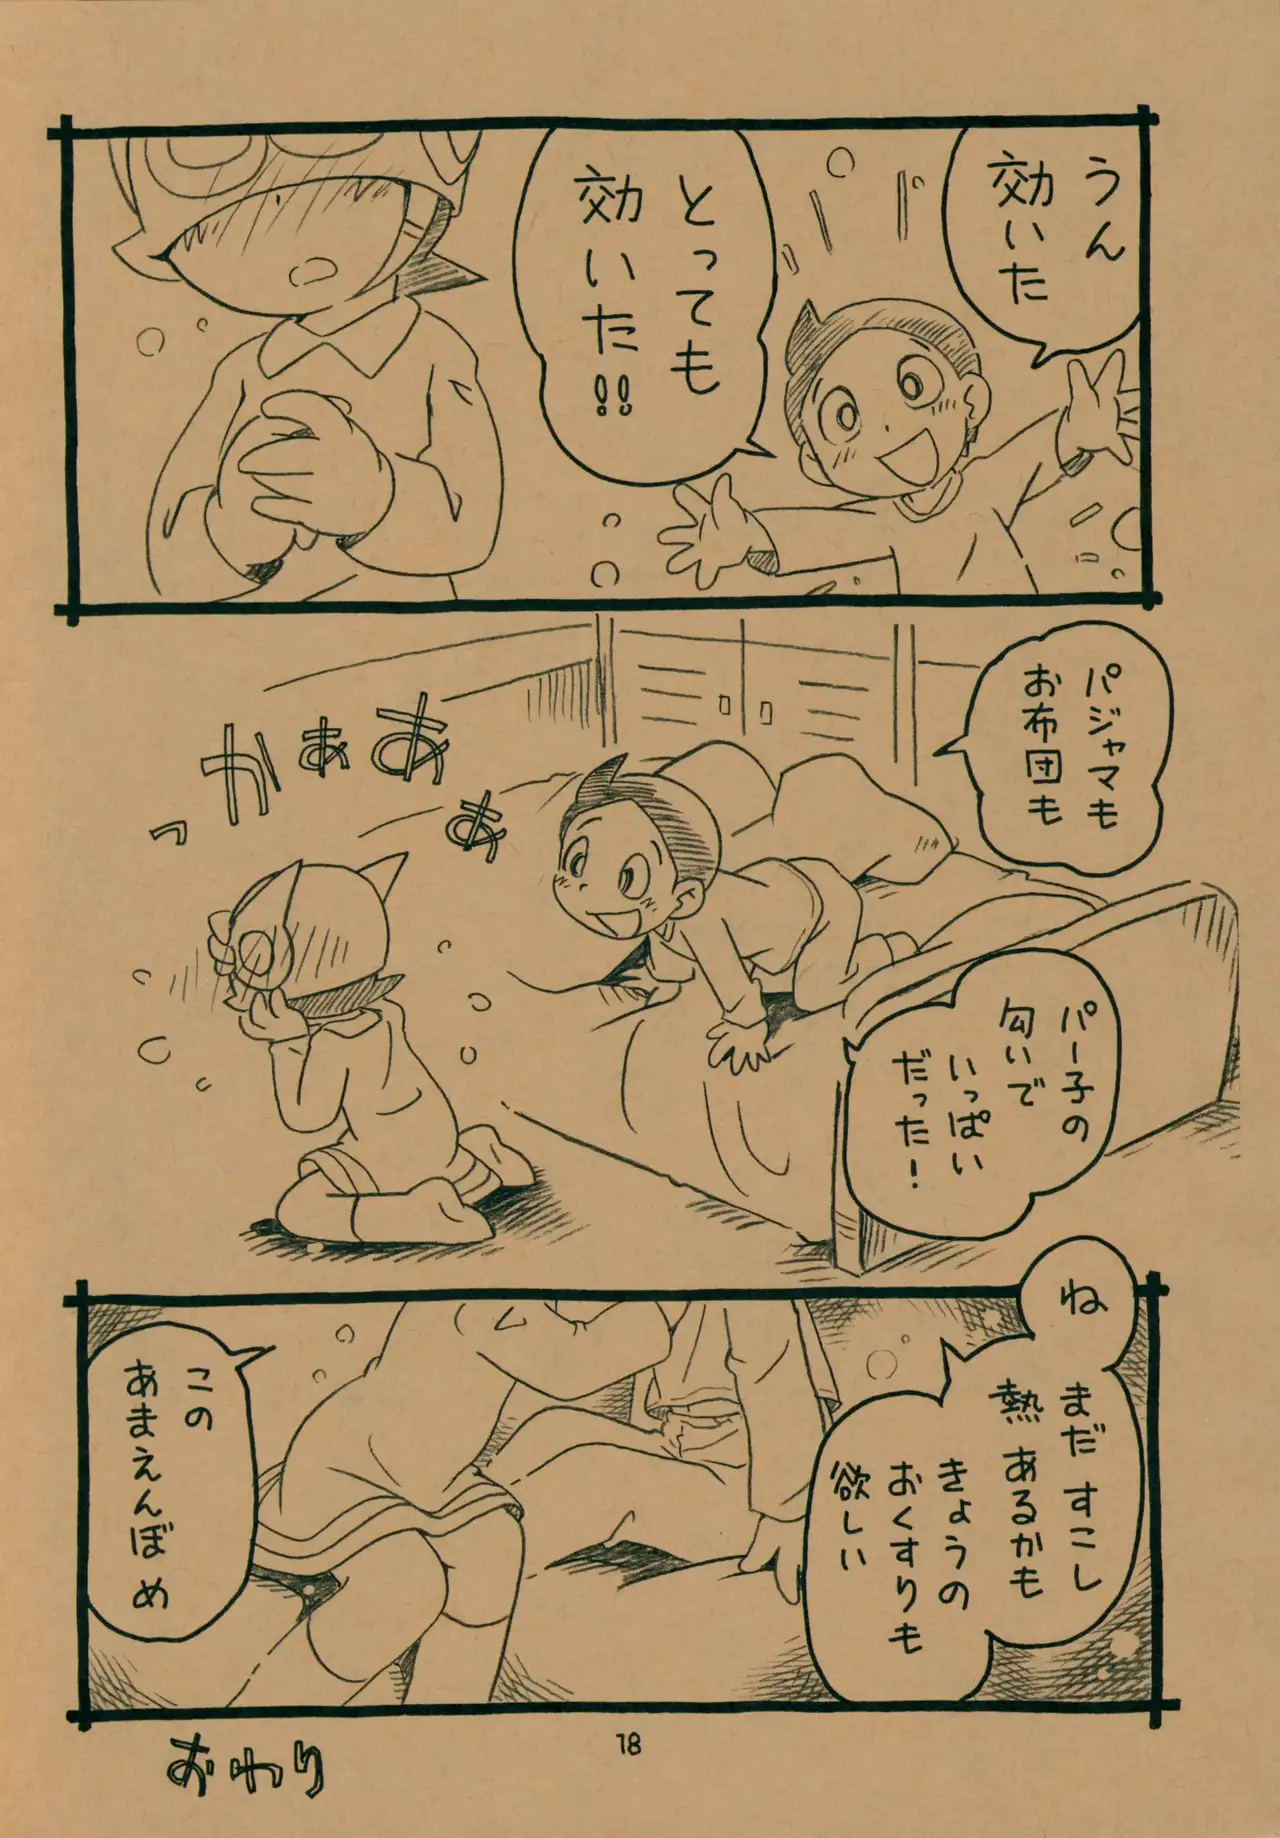 うん
効いた
とっても
効いた!!
パジャマも
お布団も
かぁぁあぁっ
パー子の
匂いで
いっぱい
だった!
ね
まだすこし
熱あるかも
きょうの
おくすりも
欲しい
この
あまえんぼめ
おわり
18